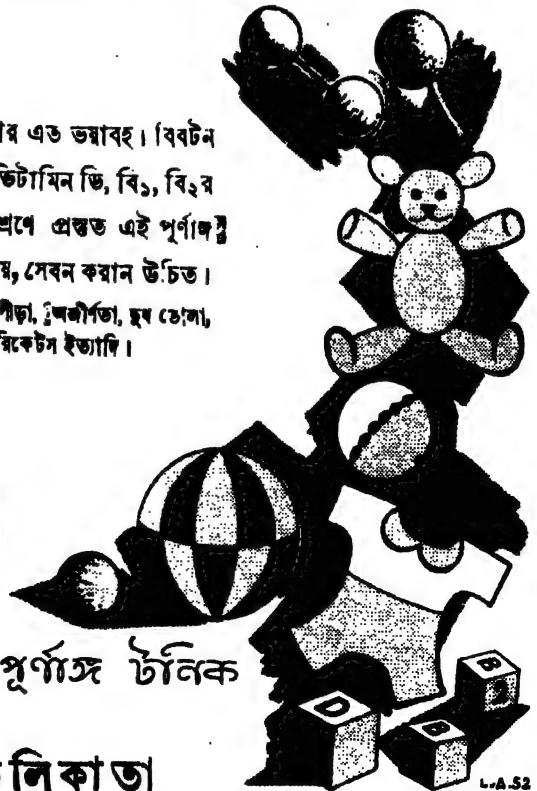 এত ভয়াবহ। বিবটন
ভিটামিন ডি, বি১, বি২র
প্রস্তুত এই পূর্ণাঙ্গ
সেবন করান উচিত।
পীড়া, অজীর্ণতা, দুধ তোলা,
রিকেটস ইত্যাদি।
পূর্ণাঙ্গ টনিক
লিকাতা
D
B
B
L.A.52